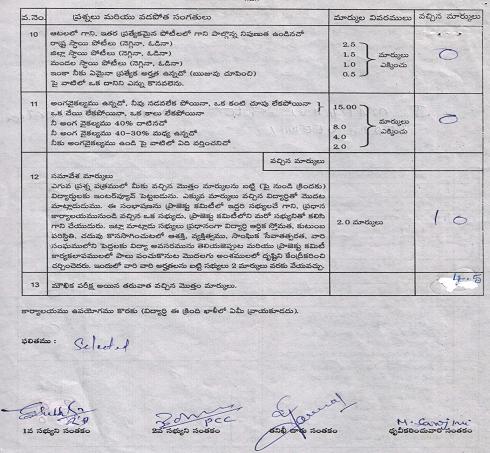 వ.నెం. ప్రశ్నలు మరియు వడపోత సంగతులు మార్కుల వివరములు వచ్చిన మార్కులు
10 ఆటలలో గాని, ఇతర ప్రత్యేకమైన పోటీలలో గాని పాల్గొన్న నిపుణత ఉండినచో
రాష్ట్ర స్థాయి పోటీలు (నెగ్గినా, ఓడినా) 2.5
జిల్లా స్థాయి పోటీలు (నెగ్గినా, ఓడినా) 1.5 మార్కులు 0
మండల స్థాయి పోటీలు (నెగ్గినా, ఓడినా) 1.0 ఎక్కించు
ఇంకా నీకు ఏమైనా ప్రత్యేక అర్హత ఉన్నదో (ఋజువు చూపించి) 0.5
పై వాటిలో ఒక దానిని ఎన్ను కొనవలెను.
11 అంగవైకల్యము ఉన్నదో, నీవు నడవలేక పోయినా, ఒక కంటి చూపు లేకపోయినా 15.00
ఒక చేయి లేకపోయినా, ఒక కాలు లేకపోయినా మార్కులు 0
నీ అంగ వైకల్యము 40% దాటినచో 8.0 ఎక్కించు
నీ అంగ వైకల్యము 40-30% మధ్య ఉన్నచో 4.0
నీకు అంగవైకల్యము ఉండి పై వాటిలో ఏది వర్తించనిచో 2.0
వచ్చిన మార్కులు
12 సమావేశ మార్కులు
ఎగువ ప్రశ్న పత్రములో మీకు వచ్చిన మొత్తం మార్కులను బట్టి (పై నుండి క్రిందకు)
విద్యార్థులకు ఇంటర్వ్యూస్ పెట్టబడును. ఎక్కువ మార్కులు వచ్చిన విద్యార్థితో మొదట
మాట్లాడుదుము. ఈ సంభాషణను ప్రాజెక్టు కమిటీలో ఇద్దరి సభ్యులచే గాని, ప్రధాన
కార్యాలయమునుండి వచ్చిన ఒక సభ్యుడు, ప్రాజెక్టు కమిటీలోని మరో సభ్యునితో కలిసి
గాని చేయుదురు. ఇట్లా మాట్లాడు సభ్యులు ప్రధానంగా విద్యార్థి ఆర్థిక స్తోమత, కుటుంబ 2.0 మార్కులు 1.0
పరిస్థితి, చదువు కొనసాగించుటలో ఆశక్తి, వ్యక్తిత్వము, సాంఘిక సేవాతత్పరత, వారి
సంఘములోని పెద్దలకు విద్యా అవసరమును తెలియజెప్పుట మరియు ప్రాజెక్టు కమిటీ
కార్యకలాపములలో పాలు పంచుకొనుట మొదలగు అంశములలో దృష్టిని కేంద్రీకరించి
చర్చించెదరు. ఇందులో వారి వారి అర్హతలను బట్టి సభ్యులు 2 మార్కులు వరకు వేయువచ్చు.
13 మౌఖిక పరీక్ష అయిన తరువాత వచ్చిన మొత్తం మార్కులు. 4.5
కార్యాలయము ఉపయోగము కొరకు (విద్యార్థి ఈ క్రింది ఖాళీలో ఏమీ వ్రాయకూడదు).
ఫలితము : Selected
PCC
1వ సభ్యుని సంతకం 2వ సభ్యుని సంతకం తనిఖీ దారు సంతకం ధృవీకరించువారి సంతకం